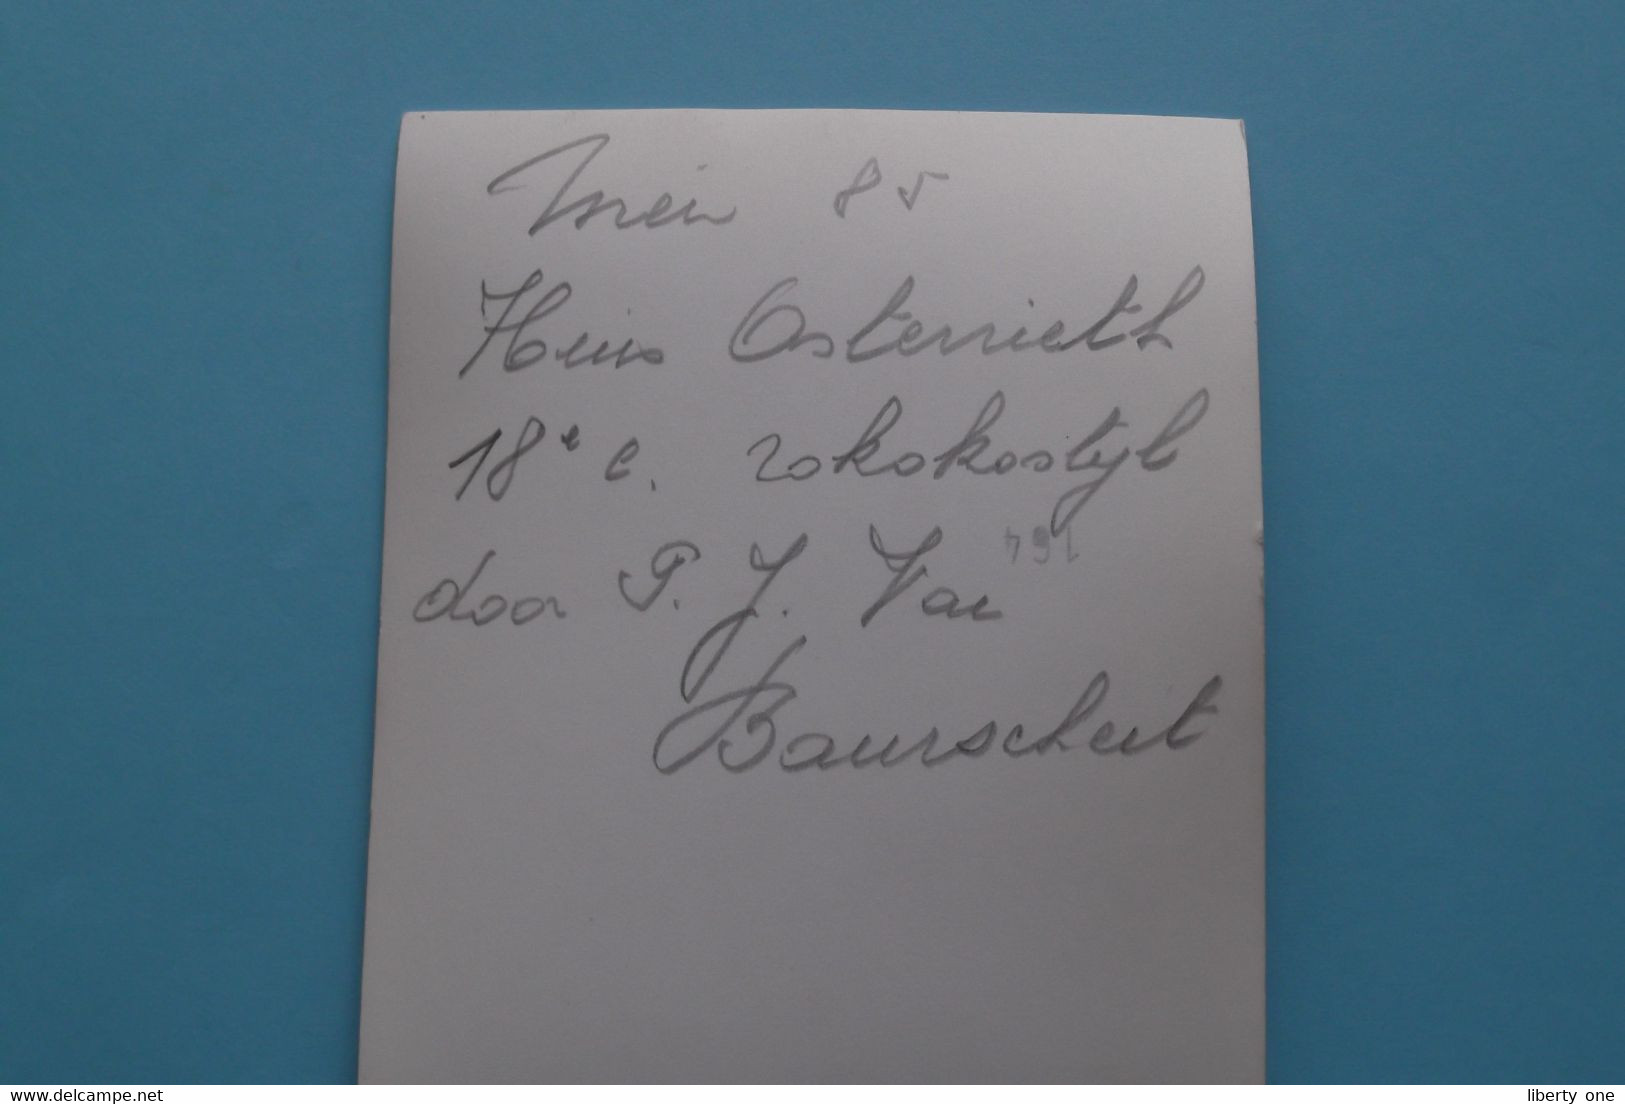 Meir 85
Huis Osterrieth
18e c. rokokostijl
door P. J. Van
164
Baurscheit
delcampe.net
liberty_one